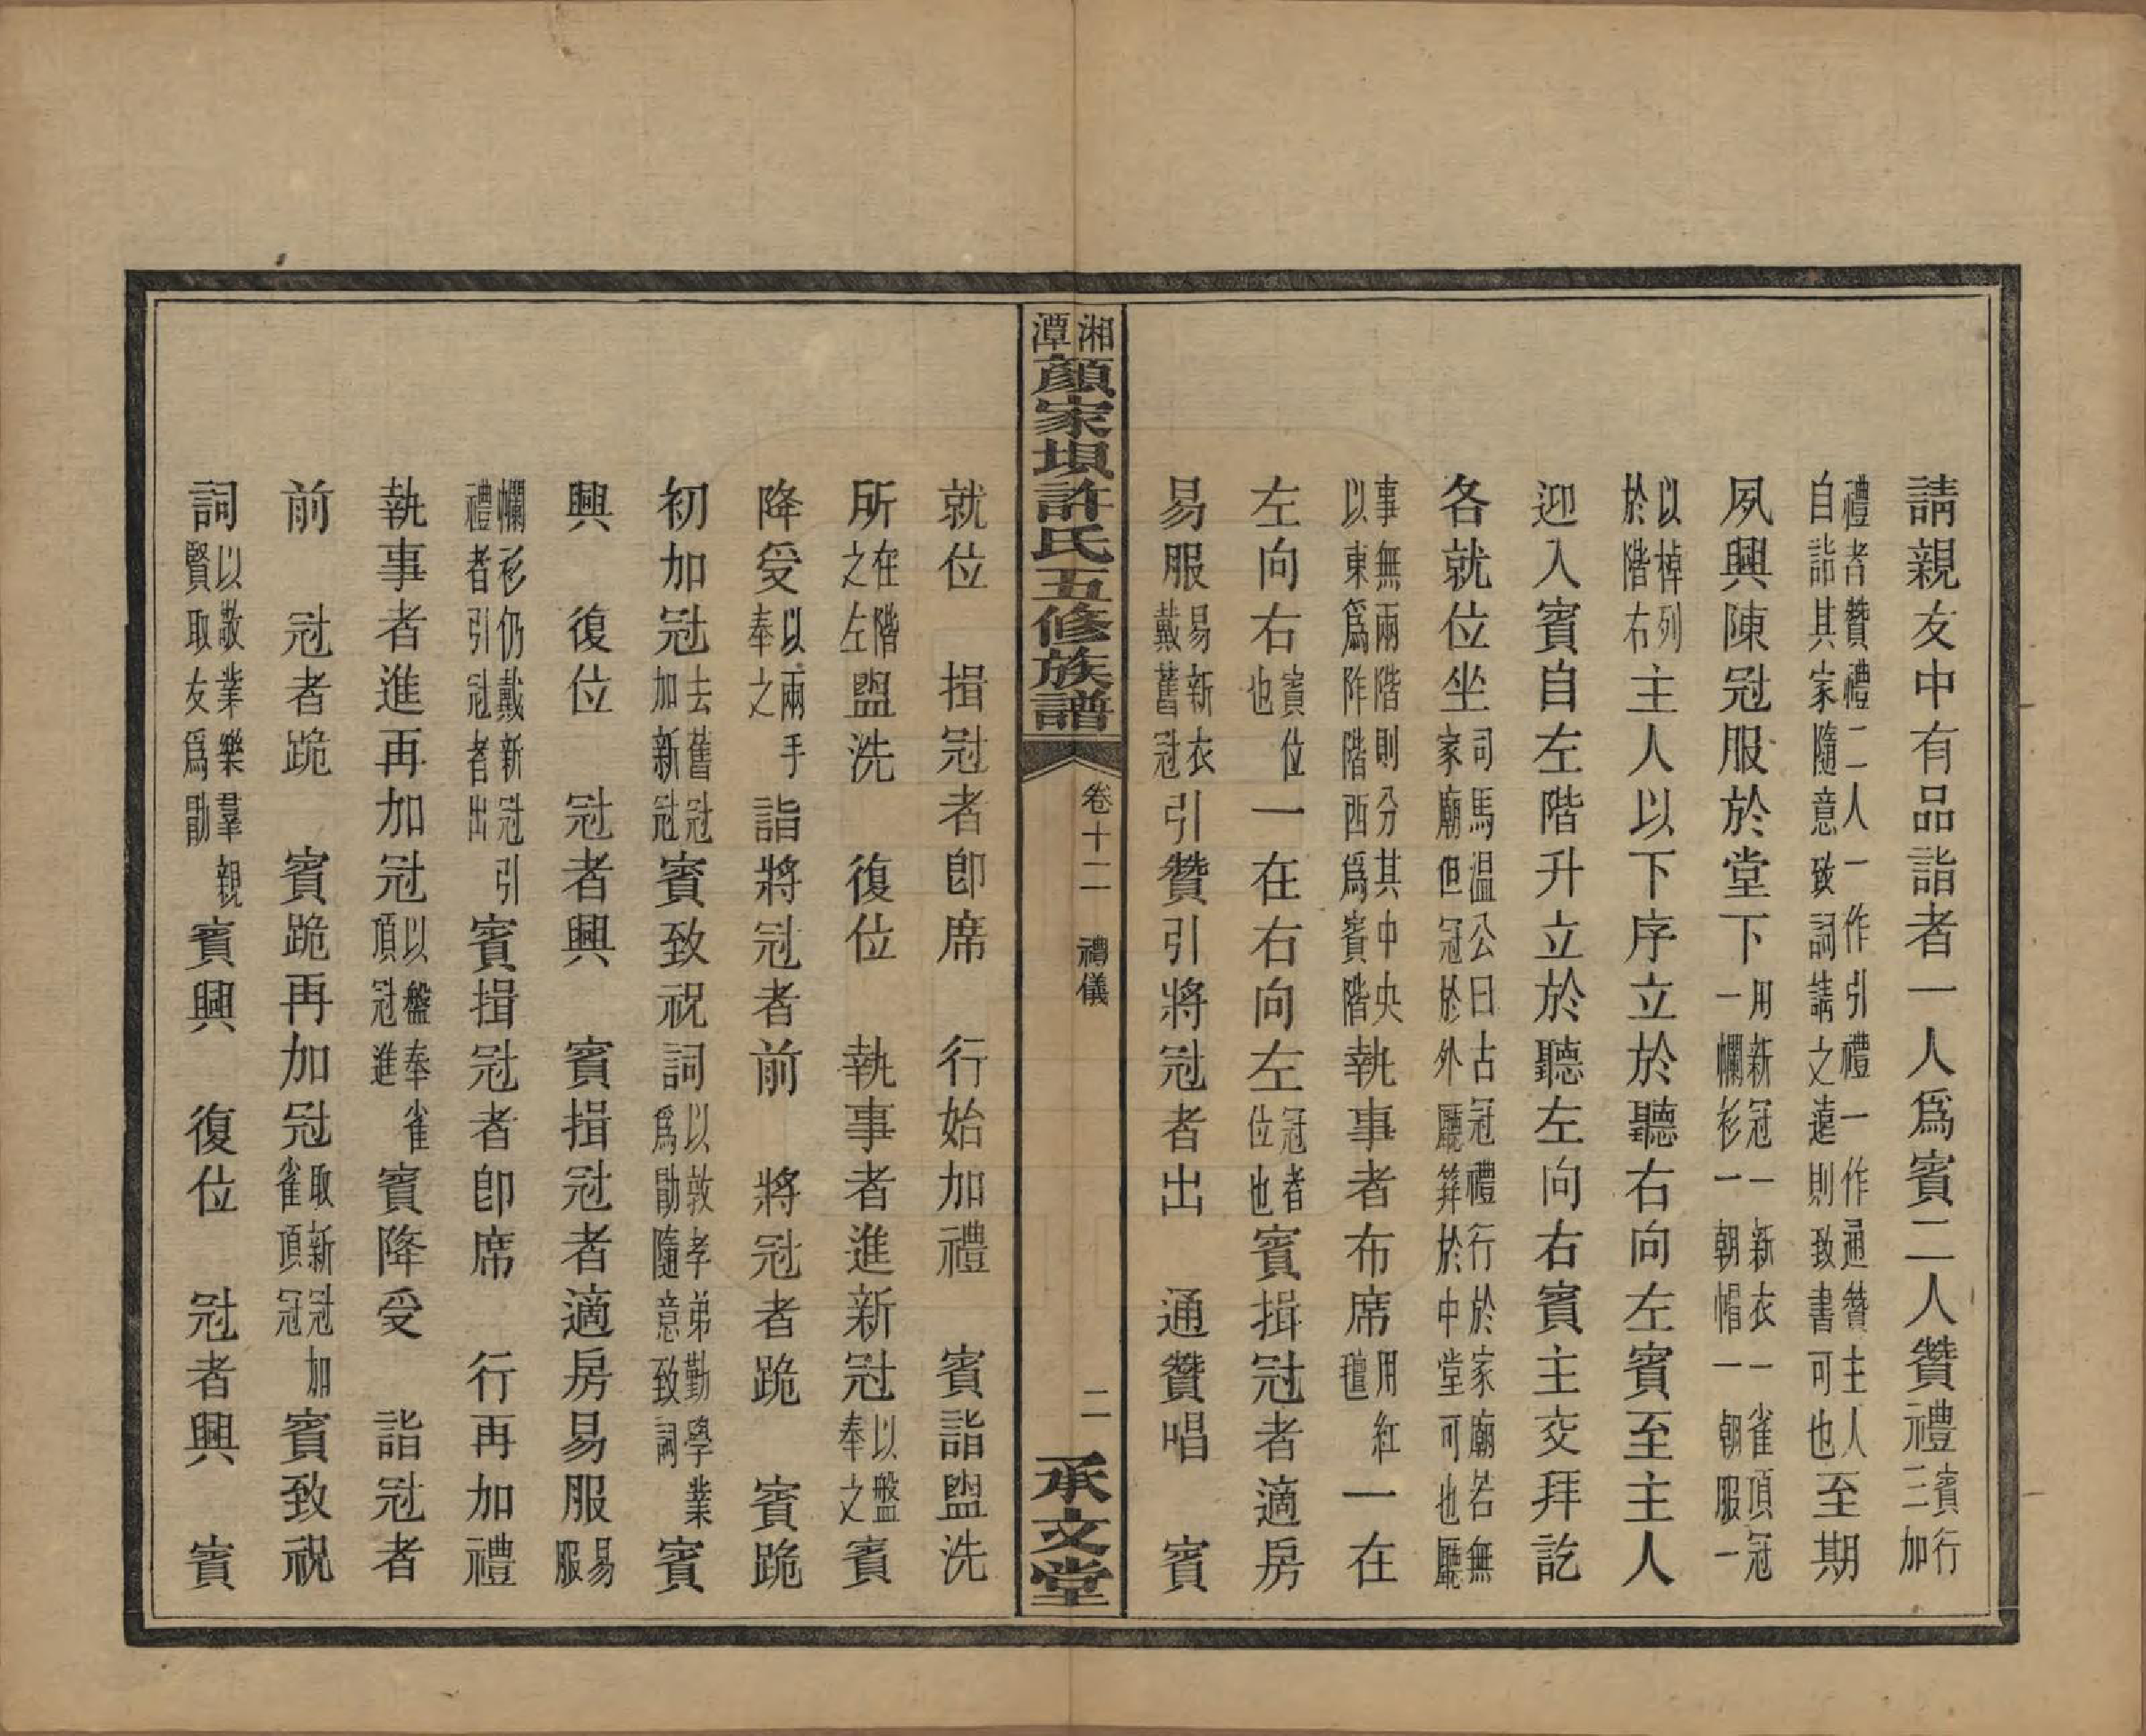 請親友中有品詣者一人爲賓二人贊禮賓行三加
禮者贊禮二人一作引禮一作通贊主人自詣其家隨意致詞請之遠則致書可也至期
夙興陳冠服於堂下用新冠一新衣一雀頂冠一襴衫一朝帽一朝服一
以棹列於階右主人以下序立於聽右向左賓至主人
迎入賓自左階升立於聽左向右賓主交拜訖
各就位坐司馬温公曰古冠禮行於家廟若無家廟但冠於外廳筓於中堂可也廳
事無兩階則分其中央以東爲阼階西爲賓階執事者布席用紅氊一在
左向右賓位也一在右向左冠者位也賓揖冠者適房
易服易新衣戴舊冠引贊引將冠者出　通贊唱　賓
湘潭顏家垻許氏五修族譜　卷十二　禮儀　二　承文堂
就位　揖冠者卽席　行始加禮　賓詣盥洗
所在階之左盥洗　復位　執事者進新冠以盤奉之賓
降受以兩手奉之詣將冠者前　將冠者跪　賓跪
初加冠去舊冠加新冠賓致祝詞以敦孝弟勤學業爲勖隨意致詞賓
興　復位　冠者興　賓揖冠者適房易服易服
襴衫仍戴新冠引禮者引冠者出賓揖冠者卽席　行再加禮
執事者進再加冠以盤奉雀頂冠進賓降受　詣冠者
前　冠者跪　賓跪再加冠取新冠加雀頂冠賓致祝
詞以敬業樂羣親賢取友爲勖賓興　復位　冠者興　賓